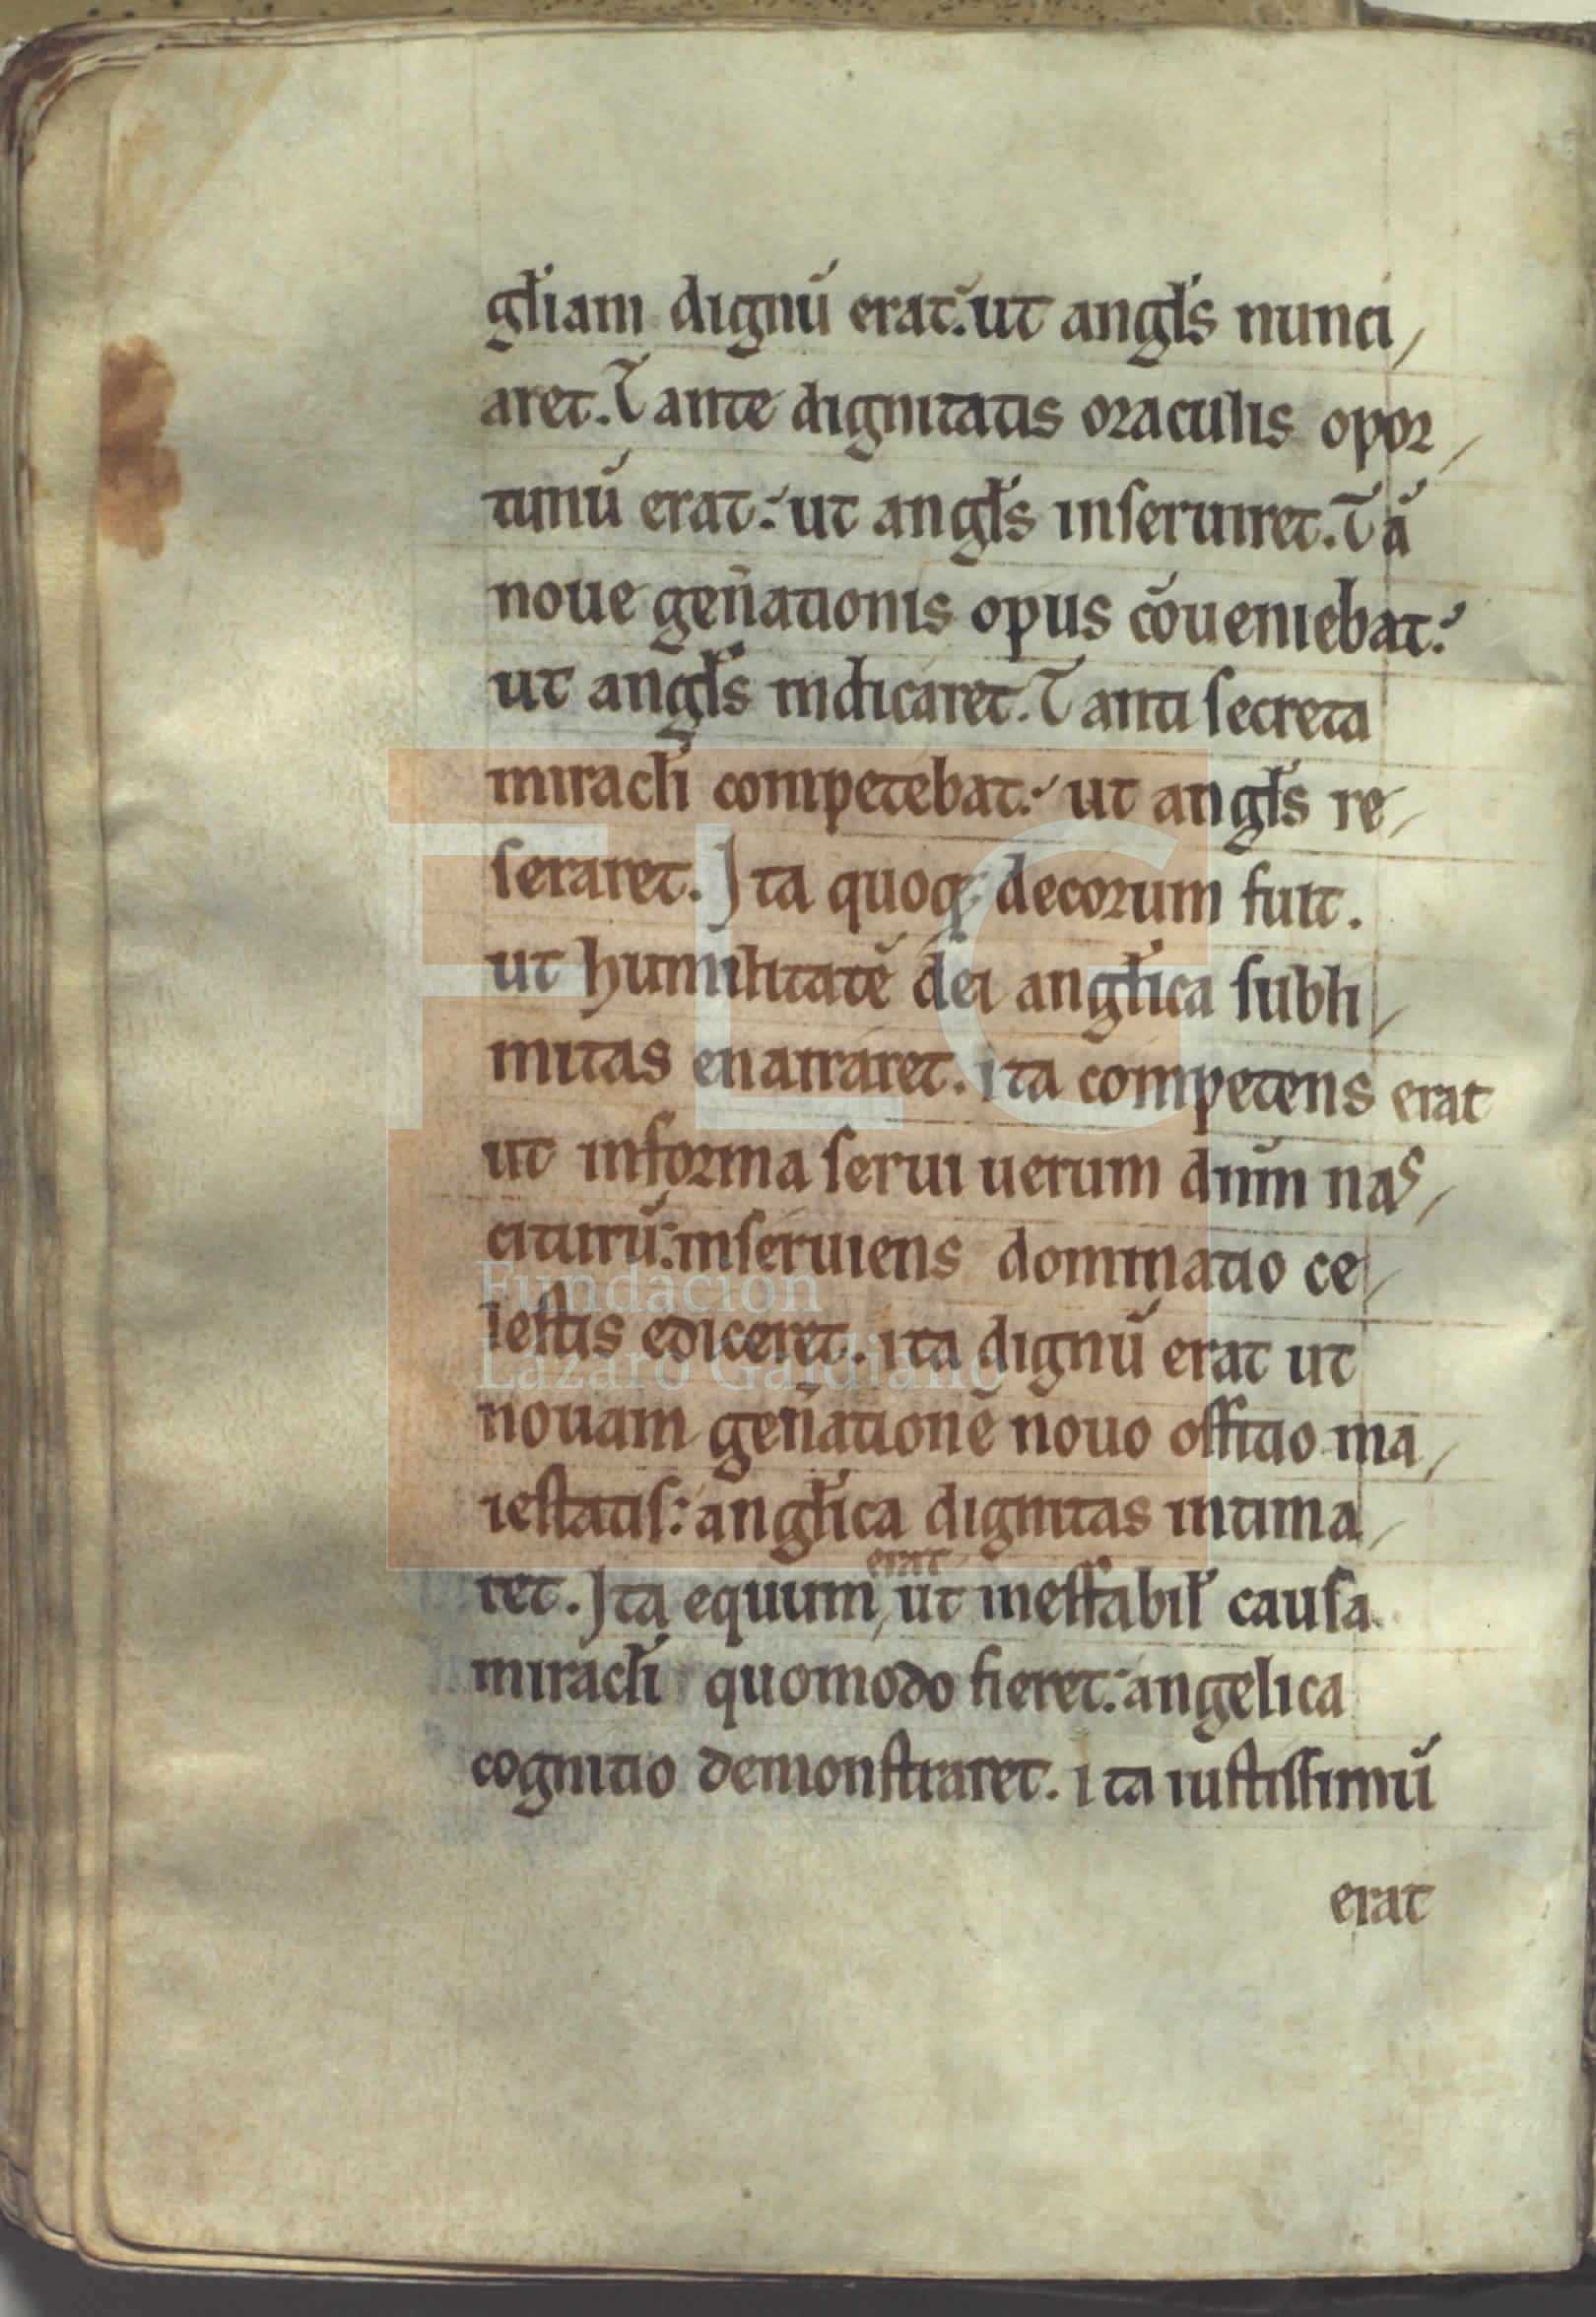 gl̄iam dignū erat. ut angl̄s nunci,
aret. Tante dignitatis oraculis opor,
tunū erat: ut angl̄s inseruiret. Tā
noue gen̄ationis opus cōueniebat:
ut angl̄s indicaret. Tanti secreta
miracl̄i competebat: ut angl̄s re,
seraret. Ita quoqꝫ decorum fuit.
ut humilitatē dei angl̄ica subli,
mitas enarraret. ita competens erat
ut informa serui uerum dn̄m nas,
citurū: inseruiens dominatio ce,
lestis ediceret. ita dignū erat ut
nouam gen̄ationē nouo offitio ma,
iestatis: angl̄ica dignitas intima,
erat
ret. Ita equum, ut ineffabil̄ causa
miracl̄i quomodo fieret: angelica
cognitio demonstraret. ita iustissimū
erat
FLG
Fundación
Lázaro Galdiano